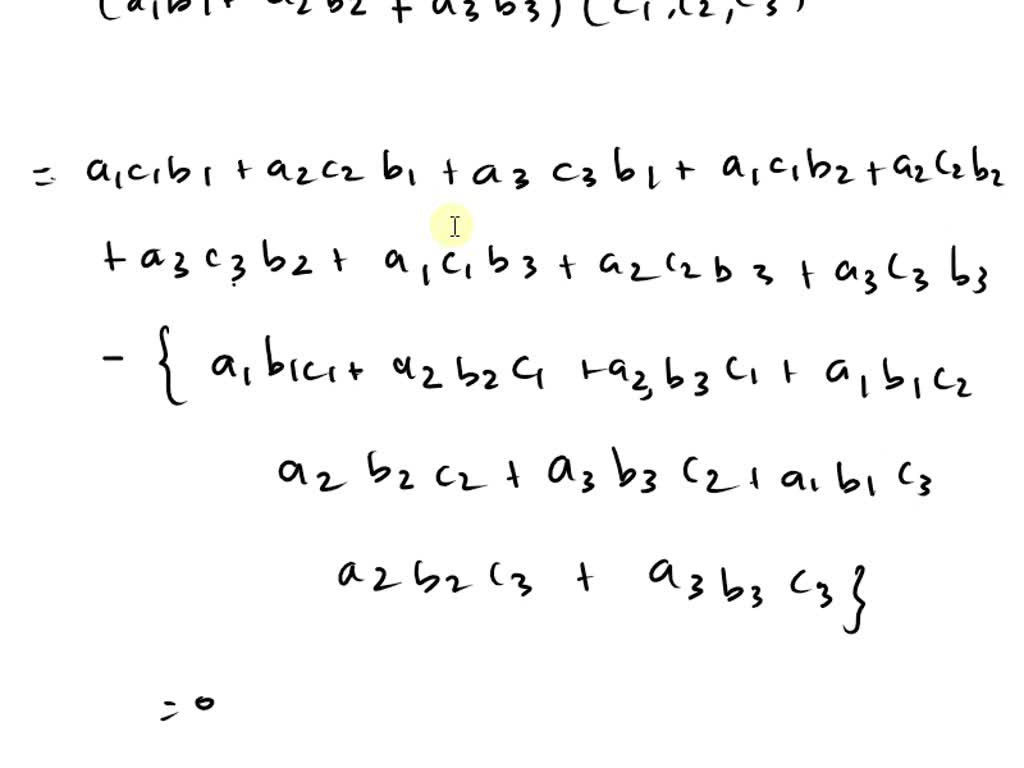 (a1b1+ a2b2 + a3b3) (c1,c2,c3)
= a1c1b1 + a2c2 b1 + a3 c3 b1 + a1c1b2 + a2c2b2
+ a3c3b2 + a1c1b3 + a2c2b3 + a3c3b3
- { a1b1c1 + a2b2c1 + a3b3c1 + a1b1c2
a2b2c2 + a3b3c2 + a1b1c3
a2b2c3 + a3b3c3}
= 0